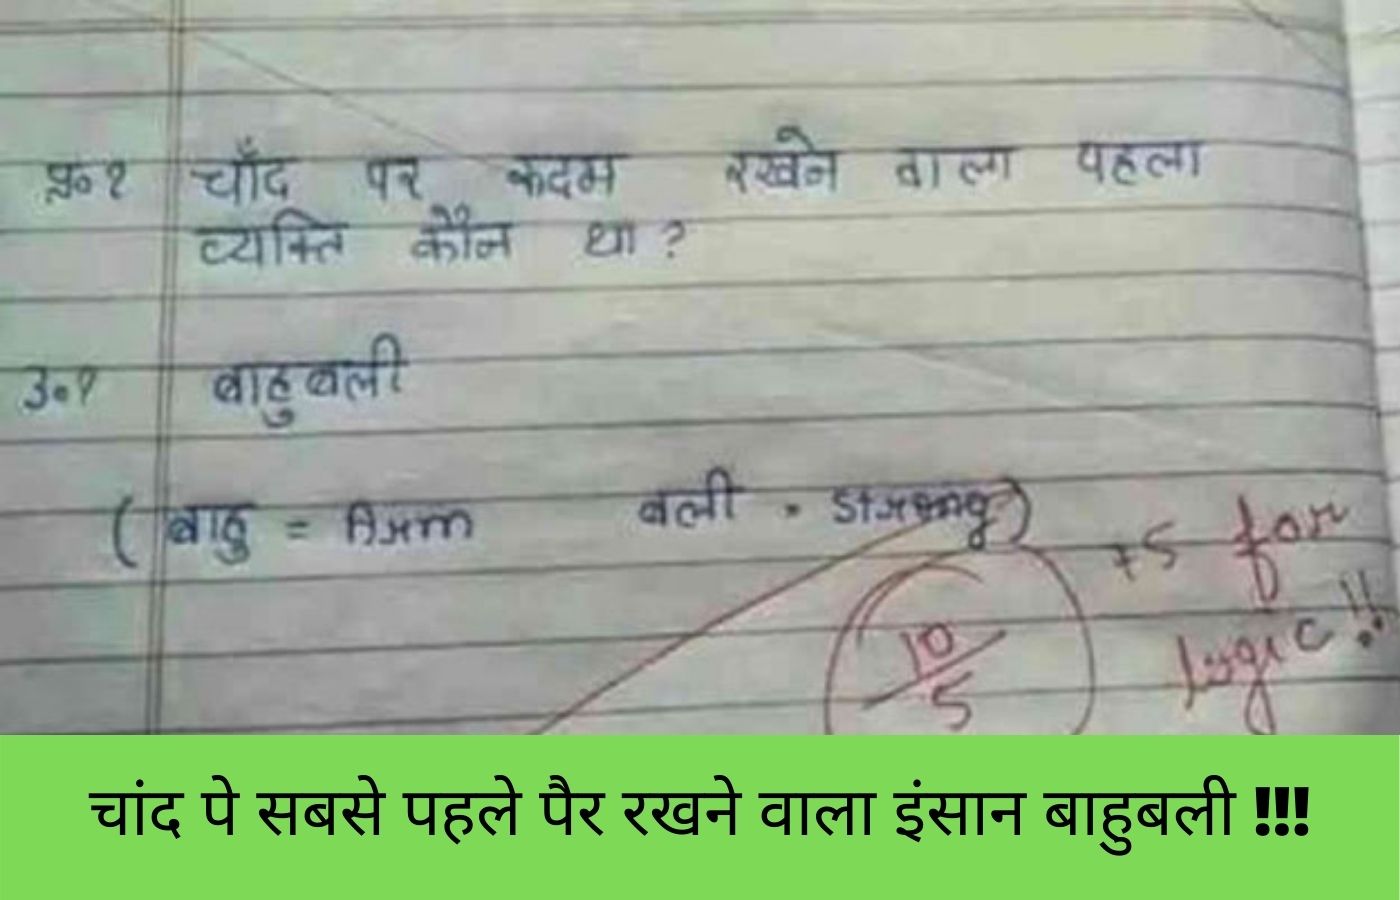 प्र०१ चाँद पर कदम रखने वाला पहला
व्यक्ति कौन था ?
उ०१ बाहुबली
( बाहु = Arm बली = Strong)
+5 for
logic !!
10/5
चांद पे सबसे पहले पैर रखने वाला इंसान बाहुबली !!!